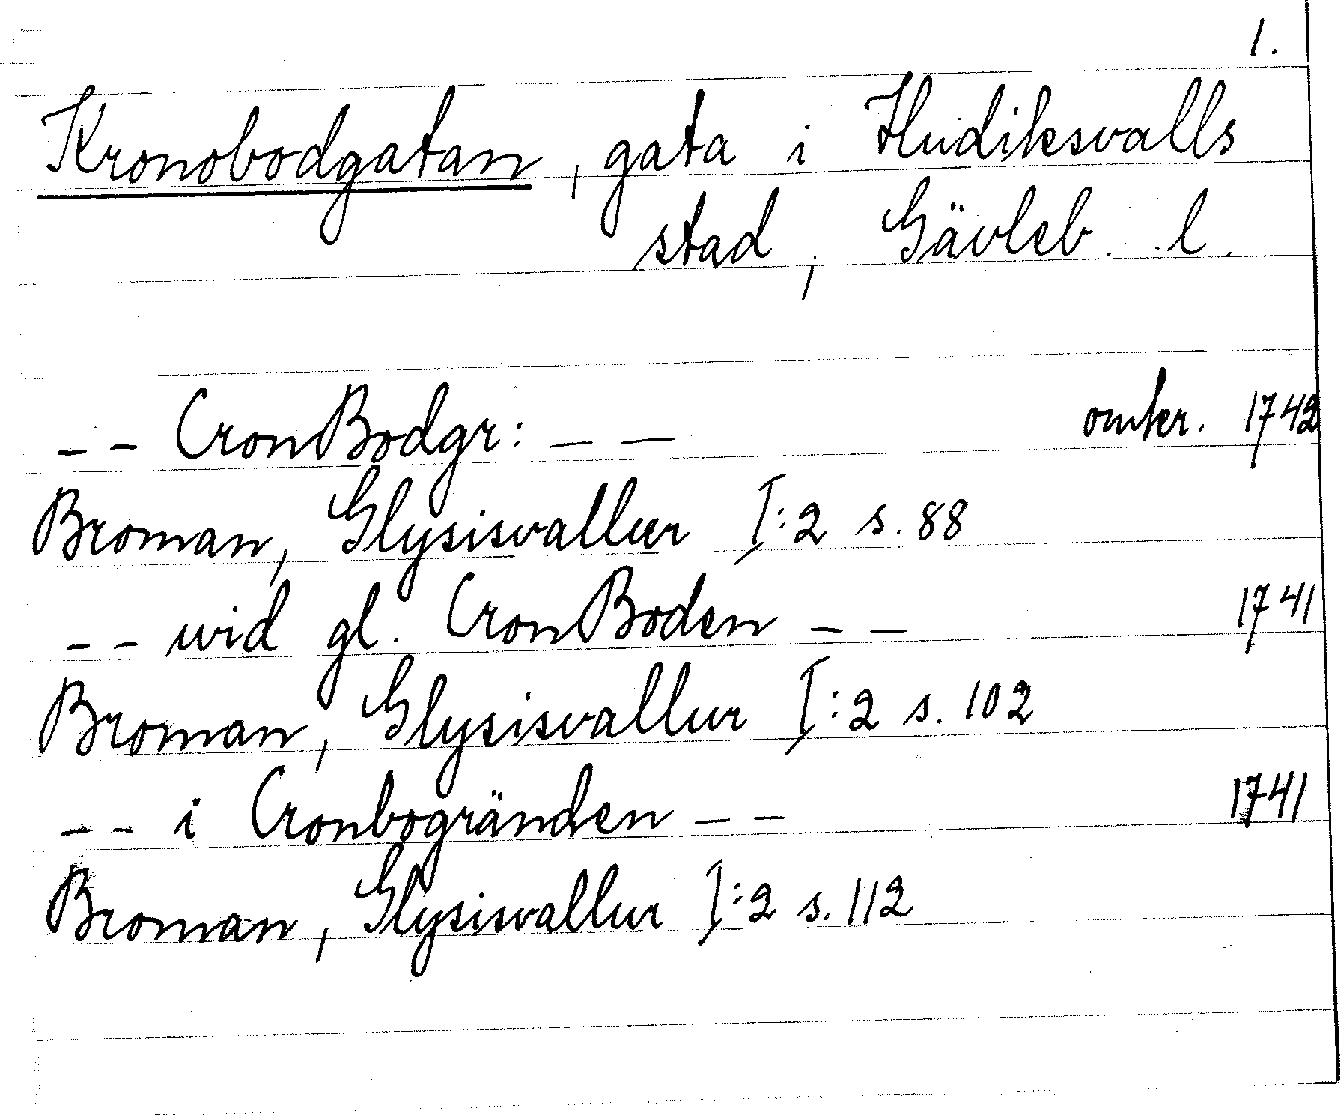 1.
Kronobodgatan, gata i Hudiksvalls
stad, Gävleb. l.
-- CronBodgr: -- omkr. 1742
Broman, Glysisvallur I:2 s. 88
-- wid gl. CronBoden -- 1741
Broman, Glysisvallur I:2 s. 102
-- i Cronbogränden -- 1741
Broman, Glysisvallur I:2 s. 112